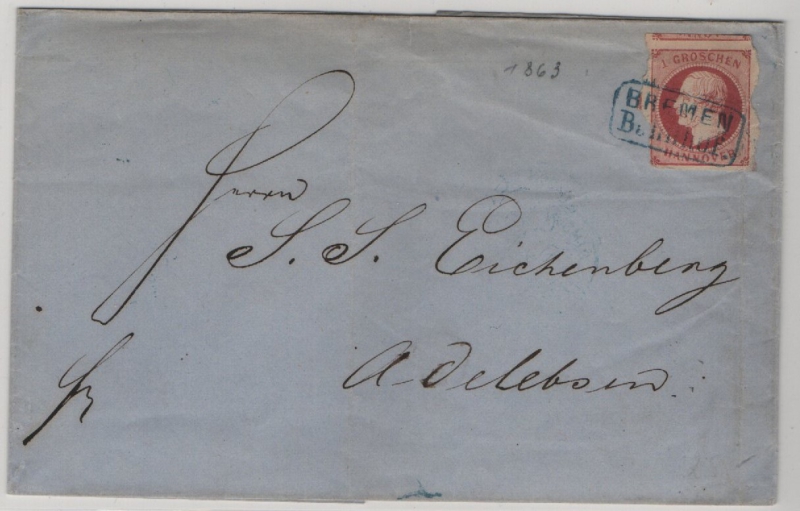 1863
1 GROSCHEN
HANNOVER
BREMEN
Bahnhof
Herrn
S. S. Eichenberg
Adelebsen
fr